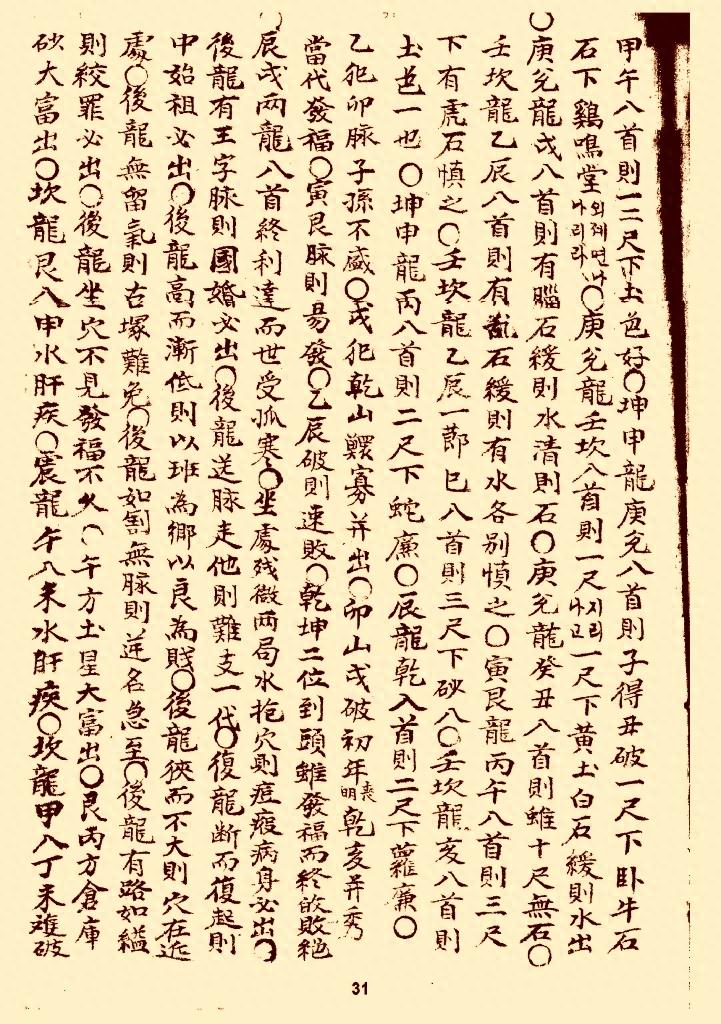 甲午八首則一二尺下土色好〇坤申龍庚兌八首則子得丑破一尺下臥牛石
石下鷄鳴堂외제면나나리라〇庚兌龍壬坎八首則一尺지리나고一尺下黃土白石緩則水出
〇庚兌龍戌八首則有腦石緩則水清則石〇庚兌龍癸丑八首則雖十尺無石〇
壬坎龍乙辰八首則有亂石緩則有水各別慎之〇寅艮龍丙午八首則三尺
下有虎石慎之〇壬坎龍乙辰一節巳八首則三尺下砂八〇壬坎龍亥八首則
土色一也〇坤申龍丙八首則二尺下蛇廉〇辰龍乾入首則二尺下蘿廉〇
乙犯卯脉子孫不盛〇戌犯乾山鰥寡并出〇卯山戌破初年喪明乾亥并秀
當代發福〇寅艮脉則易發〇乙辰破則速敗〇乾坤二位到頭雖發福而終敀敗絕
辰戌兩龍八首終利達而世受孤寒〇坐處殘微兩局水抱穴則疽瘢病身必出〇
後龍有王字脉則國婚必出〇後龍送脉走他則難支一代〇復龍断而復起則
中始祖必出〇後龍高而漸低則以班為鄉以良為賎〇後龍狹而不大則穴在近
處〇後龍無留氣則古塚難免〇後龍如割無脉則逆名急至〇後龍有路如縊
則絞罪必出〇後龍坐穴不見發福不久〇午方土星大富出〇艮丙方倉庫
砂大富出〇坎龍艮八申水肝疾〇震龍午八未水肝疾〇坎龍甲八丁未難破
31